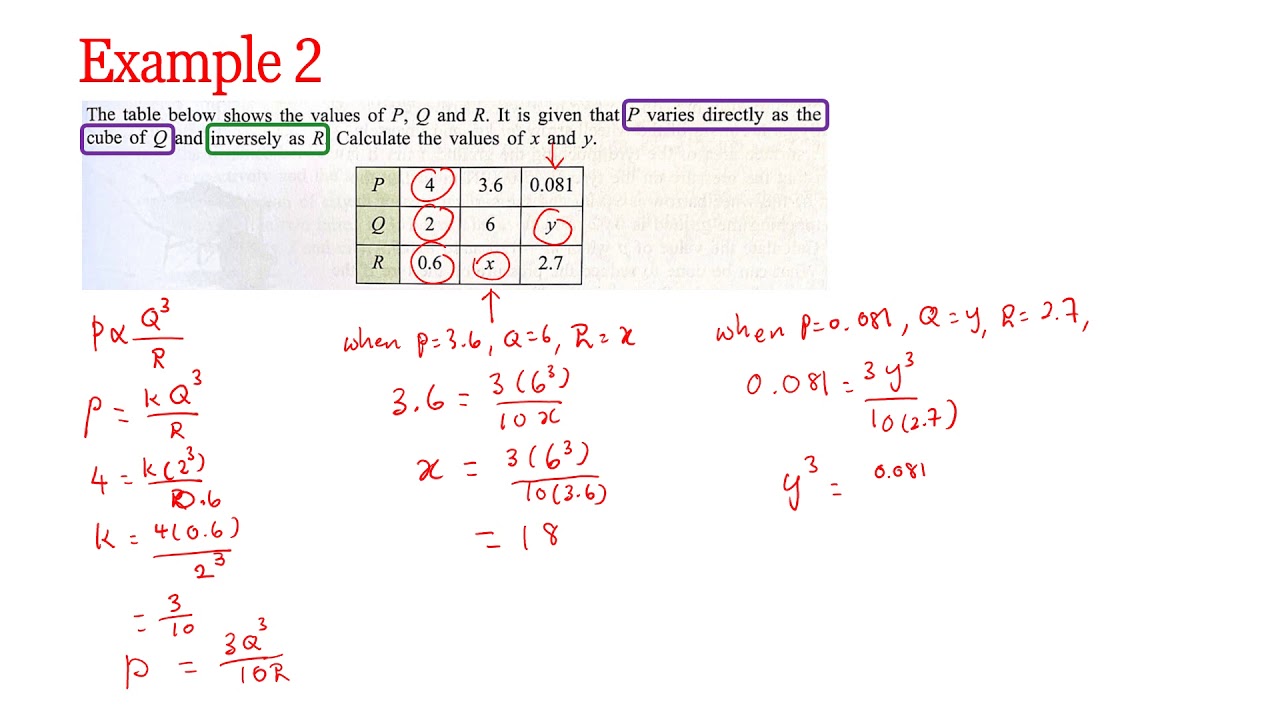 Example 2
The table below shows the values of P, Q and R. It is given that P varies directly as the
cube of Q and inversely as R. Calculate the values of x and y.
P 4 3.6 0.081
Q 2 6 y
R 0.6 x 2.7
P ∝ Q³/R
P = kQ³/R
4 = k(2³)/0.6
k = 4(0.6)/2³
= 3/10
P = 3Q³/10R
when P=3.6, Q=6, R=x
3.6 = 3(6³)/10x
x = 3(6³)/10(3.6)
= 18
when P=0.081, Q=y, R=2.7,
0.081 = 3y³/10(2.7)
y³ = 0.081